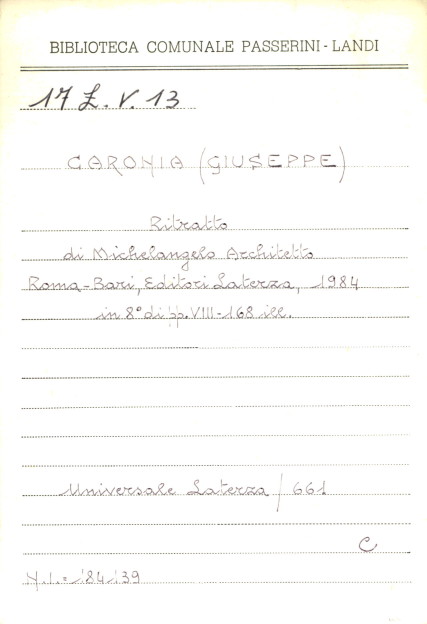 BIBLIOTECA COMUNALE PASSERINI - LANDI
17 Z. V. 13
CARONIA (GIUSEPPE)
Ritratto
di Michelangelo Architetto
Roma-Bari, Editori Laterza, 1984
in 8° di pp. VIII-168 ill.
Universale Laterza / 661
C
N.I.= '84'139